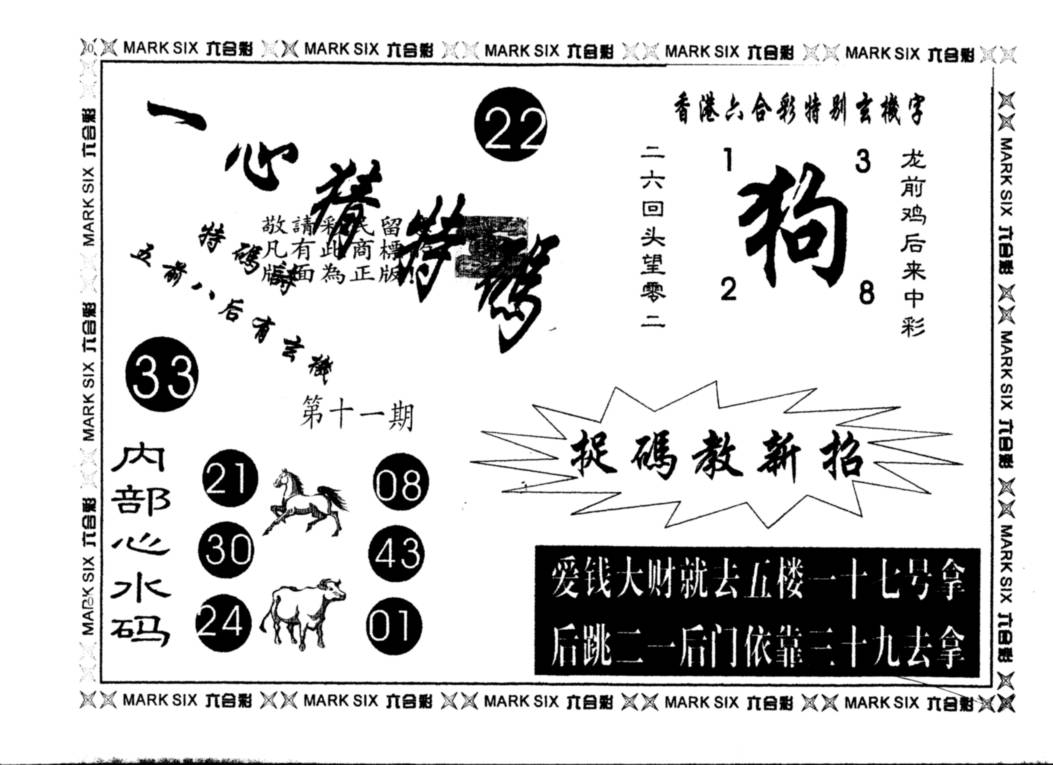 MARK SIX 六合彩 MARK SIX 六合彩 MARK SIX 六合彩 MARK SIX 六合彩 MARK SIX 六合彩
MARK SIX 六合彩 MARK SIX 六合彩 MARK SIX 六合彩
一心猜特碼
22
敬請彩民留
凡有此商標
版面為正版!
特碼詩
五前八后有玄機
33
第十一期
香港六合彩特别玄機字
二六回头望零二
1 3
狗
2 8
龙前鸡后来中彩
内部心水码
21 08
30 43
24 01
捉碼教新招
爱钱大财就去五楼一十七号拿
后跳二一后门依靠三十九去拿
MARK SIX 六合彩 MARK SIX 六合彩 MARK SIX 六合彩
MARK SIX 六合彩 MARK SIX 六合彩 MARK SIX 六合彩 MARK SIX 六合彩 MARK SIX 六合彩